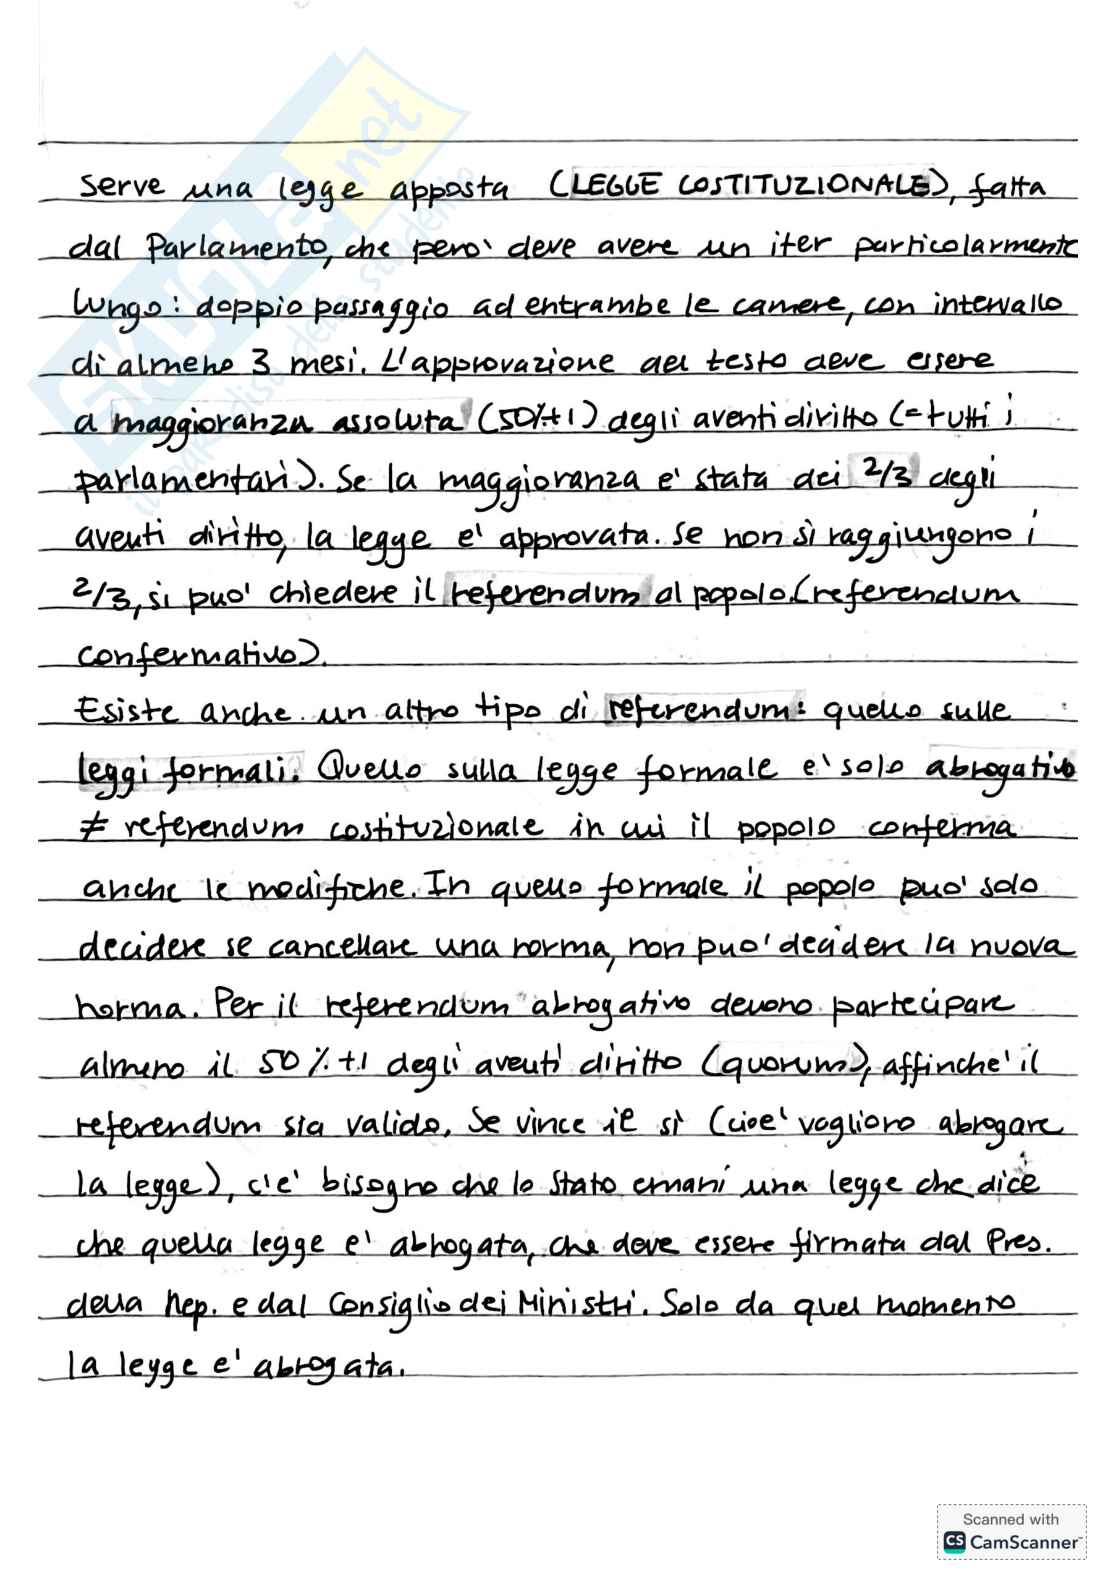 SKUOLA.net
il paradiso dello studente
Serve una legge apposta (LEGGE COSTITUZIONALE), fatta
dal Parlamento, che però deve avere un iter particolarmente
lungo: doppio passaggio ad entrambe le camere, con intervallo
di almeno 3 mesi. L'approvazione del testo deve essere
a maggioranza assoluta (50%+1) degli aventi diritto (= tutti i
parlamentari). Se la maggioranza e' stata dei 2/3 degli
aventi diritto, la legge e' approvata. Se non si raggiungono i
2/3, si puo' chiedere il referendum al popolo. (referendum
confermativo).
Esiste anche un altro tipo di referendum: quello sulle
leggi formali. Quello sulla legge formale e' solo abrogativo
≠ referendum costituzionale in cui il popolo conferma
anche le modifiche. In quello formale il popolo puo' solo
decidere se cancellare una norma, non puo' decidere la nuova
norma. Per il referendum abrogativo devono partecipare
almeno il 50%+1 degli aventi diritto (quorum), affinche' il
referendum sia valido. Se vince il sì (cioe' vogliono abrogare
la legge), c'e' bisogno che lo Stato emani una legge che dice
che quella legge e' abrogata, che deve essere firmata dal Pres.
della Rep. e dal Consiglio dei Ministri. Solo da quel momento
la legge e' abrogata.
Scanned with
CS CamScanner